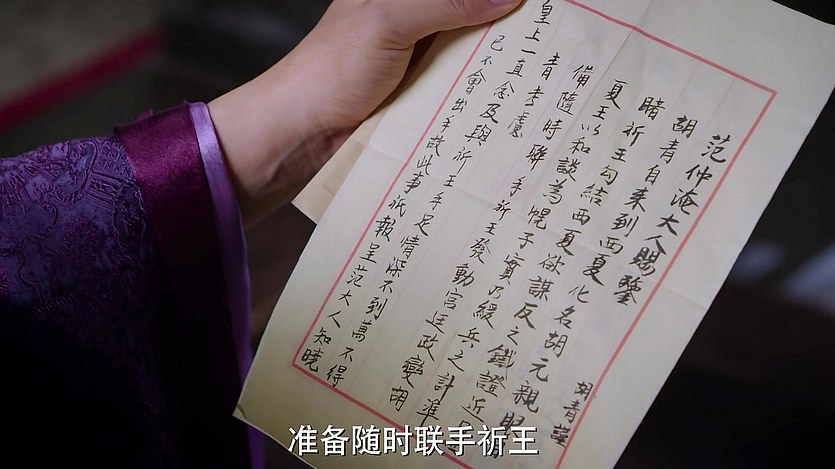 范仲淹大人賜鑒
胡青自来到西夏化名胡元親眼
睛祈王勾結西夏欲謀反之鐵證近
夏王以和談為幌子實乃緩兵之計準
備隨時聯手祈王發動宮廷政變胡
青考慮
皇上一直念及與祈王手足情深不到萬不得
已不會出手故此事祇報呈范大人知曉
胡青謹
准备随时联手祈王